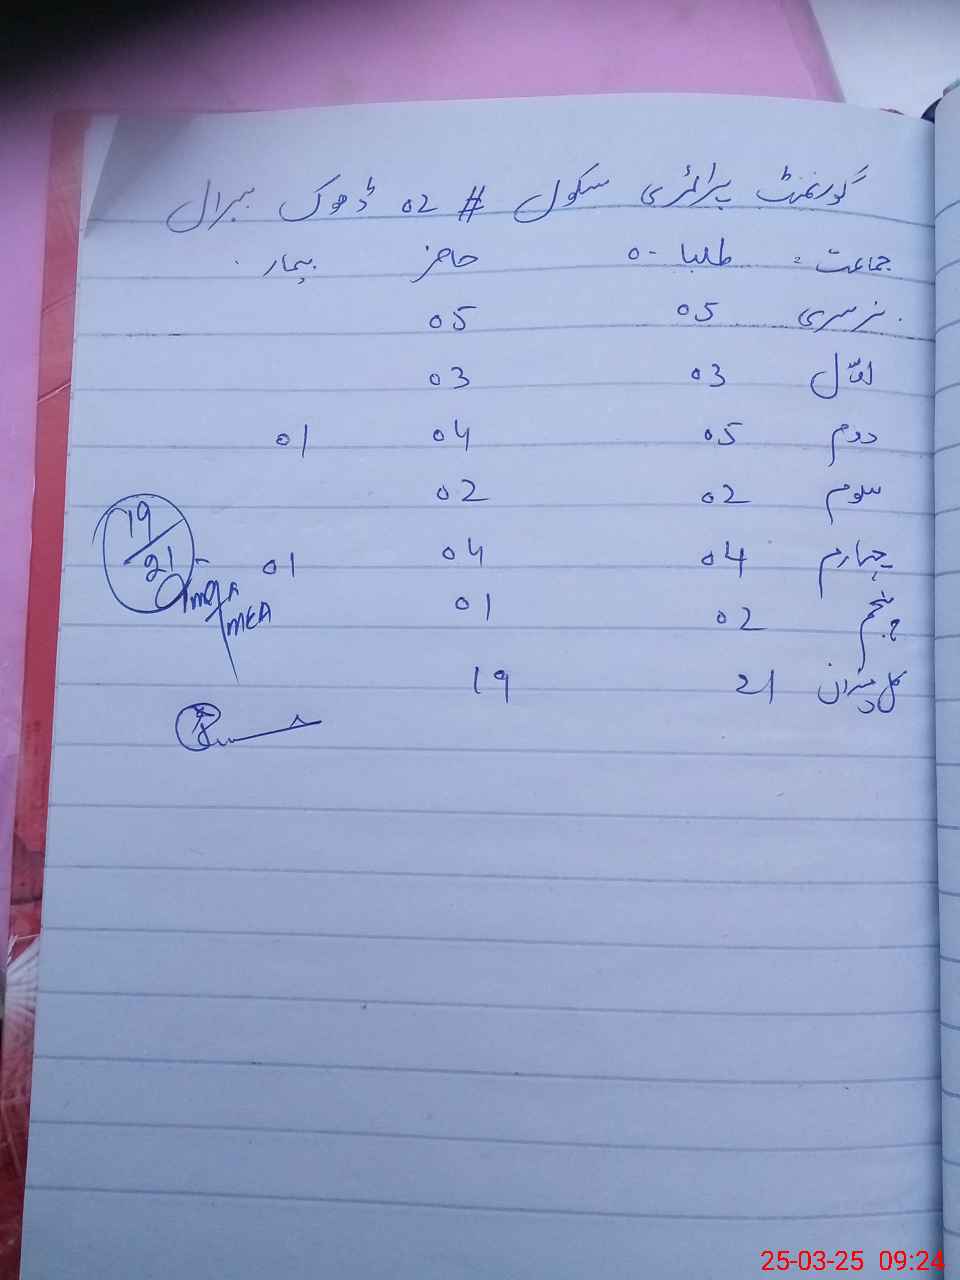 گورنمنٹ پرائمری سکول # 02 ڈھوک ہرال
جماعت : طلبا -0 حاضر بیمار
نرسری 05 05
اوّل 03 03
دوم 05 04 01
سوم 02 02
چہارم 04 04 01
پنجم 02 01
کل میزان 21 19
19/21
MEA
25-03-25 09:24